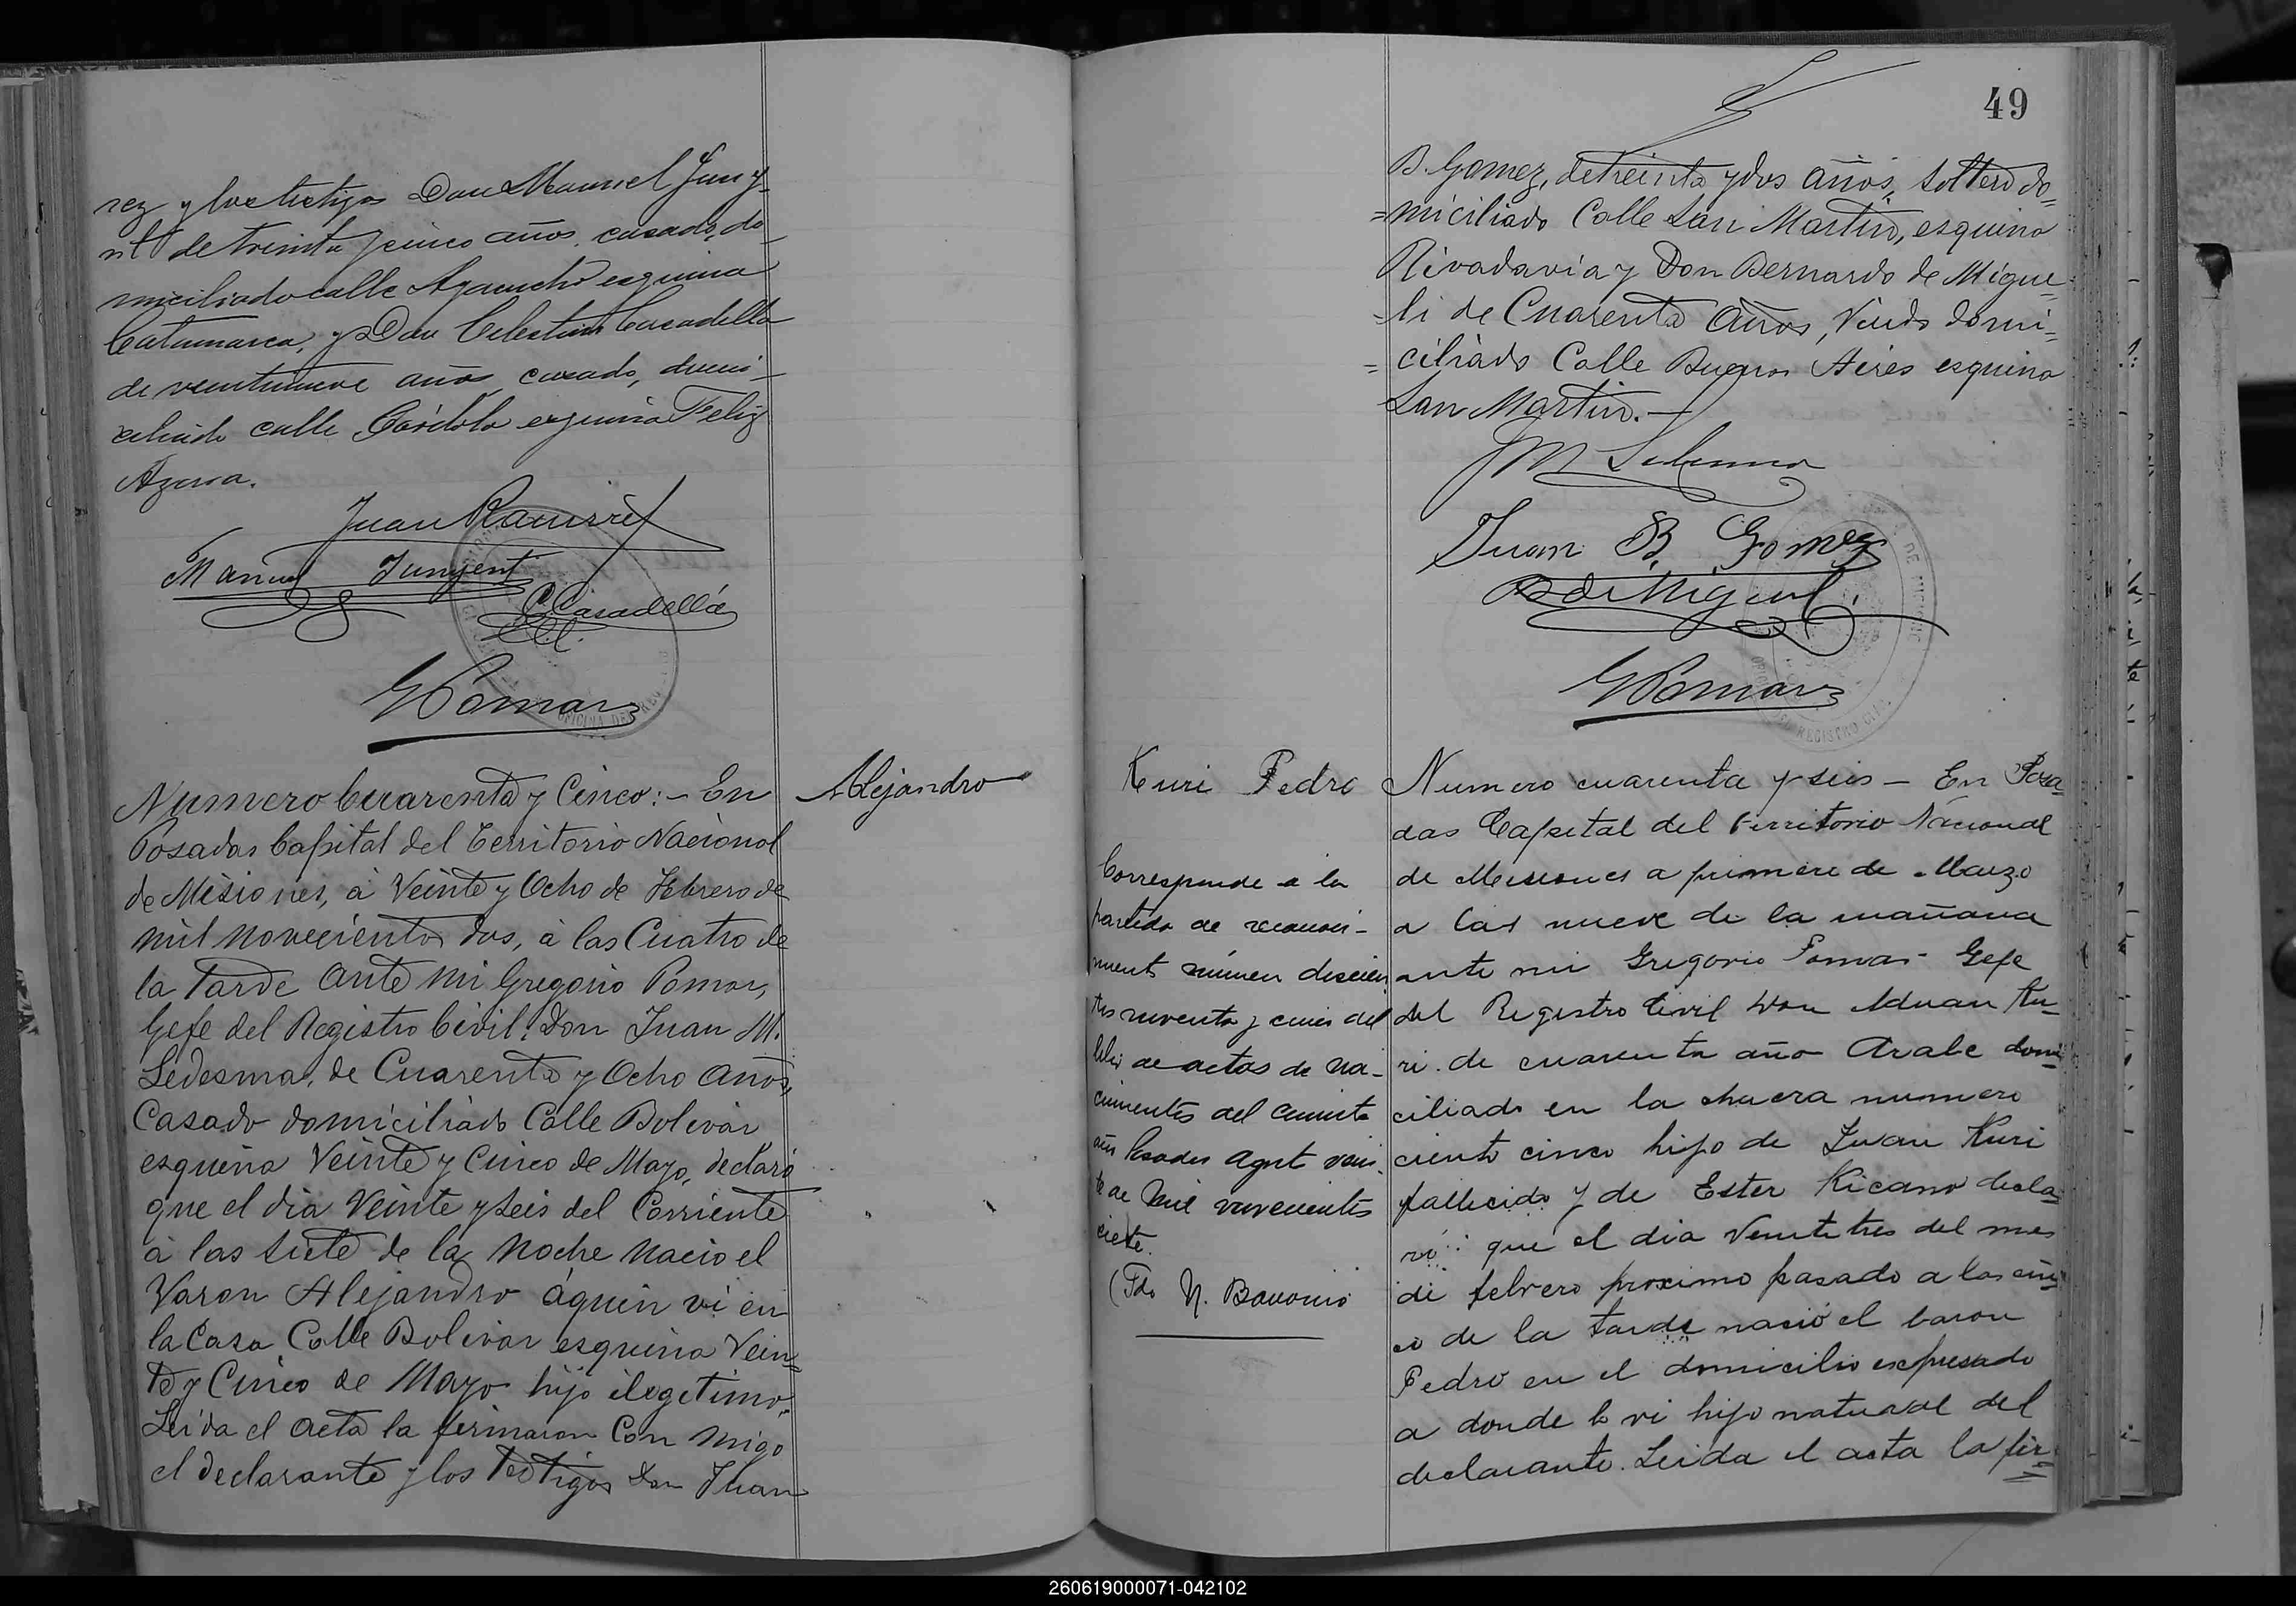 rez y los testigos Don Manuel Juny-
nt de treinta y cinco años, casado, do-
miciliado calle Ayacucho esquina
Catamarca, y Don Celestino Casadellá
de veintinueve años, casado, domi-
ciliado calle Córdoba esquina Feliz
Azara.
Juan Ramirez
Manuel Junyent
C. Casadellá
G Pomar
Numero Cuarenta y Cinco:- En
Posadas Capital del Territorio Nacional
de Misiones, à Veinte y Ocho de Febrero de
mil novecientos dos, à las Cuatro de
la Tarde Ante mi Gregorio Pomar,
Gefe del Registro Civil: Don Juan M.
Ledesma, de Cuarenta y Ocho Años,
Casado domiciliado Calle Bolivar
esquina Veinte y Cinco de Mayo, declaró
que el dia Veinte y Seis del Corriente
à las Siete de la Noche Nacio el
Varon Alejandro áquin vi en
la Casa Calle Bolivar esquina Vein=
te y Cinco de Mayo hijo ilegitimo.
Leida el Acta la firmaron Con migo
el declarante y los Testigos Don Juan
Alejandro
49
B. Gomez, de treinta y dos Años, Soltero do=
=miciliado Calle San Martin, esquina
Rivadavia y Don Bernardo de Migue=
=li de Cuarenta Años, Viudo domi=
=ciliado Calle Buenos Aires esquina
San Martin.-
Juan B. Gomez
B de Migueli
G Pomar
Kuri Pedro
Corresponde a la
partida de reconoci-
miento número doscien
tos noventa y cinco del
libro de actas de na-
cimientos del corriente
año Posadas Agosto
de Mil novecientos
siete.
(Fdo N. Bavorio
Numero cuarenta y seis - En Posa-
das Capital del territorio Nacional
de Misiones a primero de Marzo
a las nueve de la mañana
ante mi Gregorio Pomar Gefe
del Registro Civil Don Aduan Ku-
ri de cuarenta año Arabe domi-
ciliado en la chacra numero
ciento cinco hijo de Juan Kuri
fallecido y de Ester Ricano decla-
ró: que el dia Veintetres del mes
de febrero proximo pasado a las cin-
co de la tarde nació el baron
Pedro en el domicilio expresado
a donde lo vi hijo natural del
declarante. Leida el acta la fir=
OFICINA DEL REGISTRO CIVIL
260619000071-042102